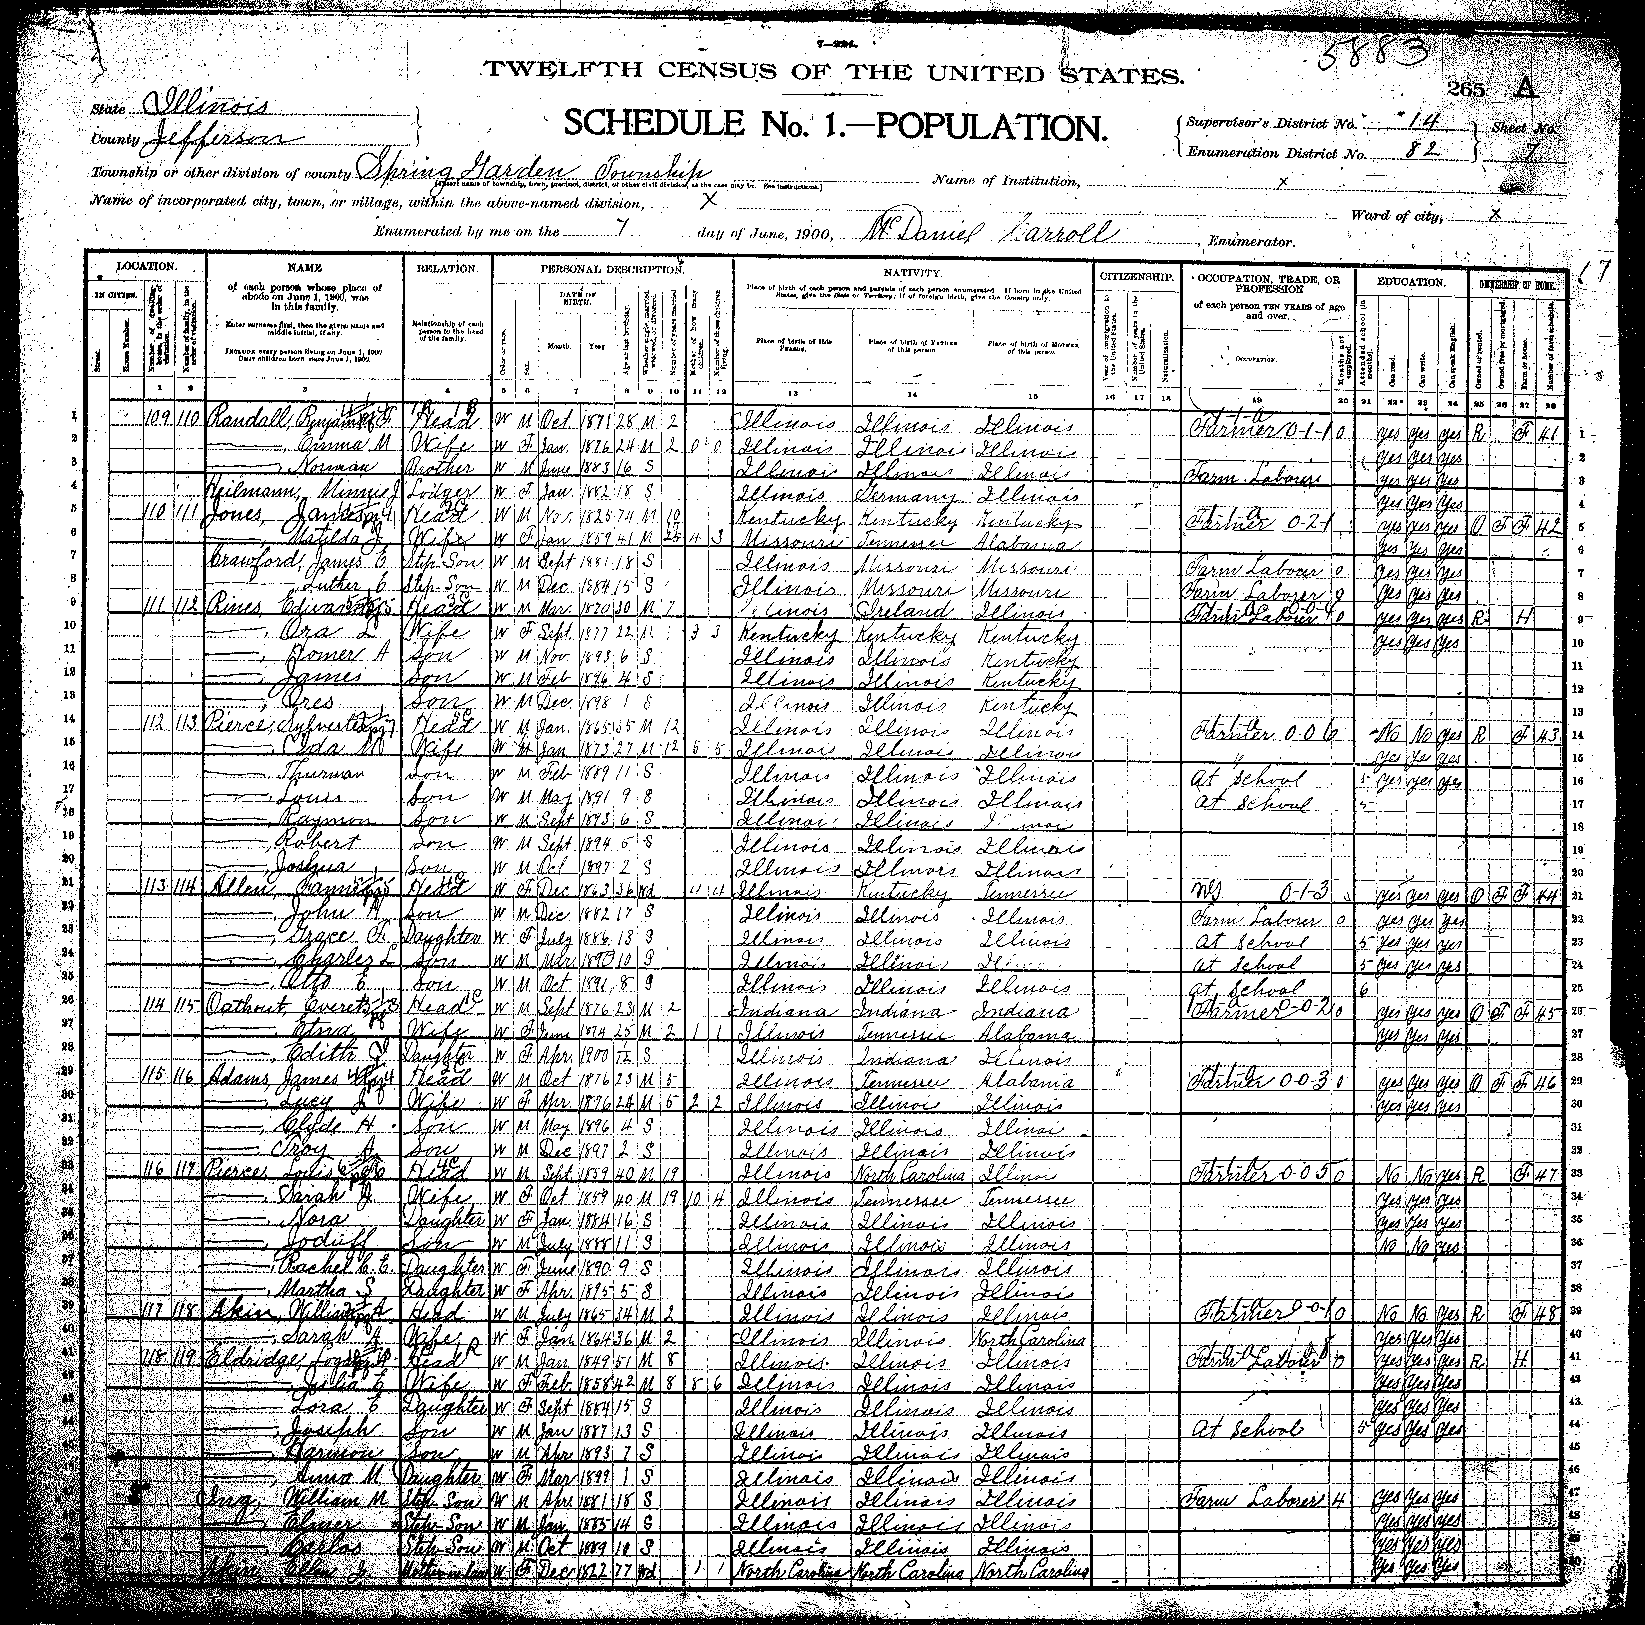 7-224.
5883
TWELFTH CENSUS OF THE UNITED STATES.
265 A
State Illinois
County Jefferson
SCHEDULE No. 1.—POPULATION.
Supervisor's District No. 14
Enumeration District No. 82
Sheet No. 7
Township or other division of county Spring Garden Township
Name of Institution, x
Name of incorporated city, town, or village, within the above-named division, X
Ward of city, x
Enumerated by me on the 7 day of June, 1900, McDaniel Carroll, Enumerator.
LOCATION. NAME RELATION. PERSONAL DESCRIPTION. NATIVITY. CITIZENSHIP. OCCUPATION, TRADE, OR PROFESSION EDUCATION. OWNERSHIP OF HOME.
IN CITIES. of each person whose place of abode on June 1, 1900, was in this family. Relationship of each person to the head of the family. DATE OF BIRTH. Month. Year of each person TEN YEARS of age and over.
Place of birth of this PERSON. Place of birth of FATHER of this person. Place of birth of MOTHER of this person. OCCUPATION.
1 2 3 4 5 6 7 8 9 10 11 12 13 14 15 16 17 18 19 20 21 22 23 24 25 26 27 28
1 109 110 Randall, Benjamin F Head W M Oct 1871 28 M 2 Illinois Illinois Illinois Farmer 0-1-1 0 yes yes yes R F 41
2 Emma M Wife W F Jan 1876 24 M 2 0 0 Illinois Illinois Illinois yes yes yes
3 Norman Brother W M June 1883 16 S Illinois Illinois Illinois Farm Laborer yes yes yes
4 Heilmann, Minnie J Lodger W F Jan 1882 18 S Illinois Germany Illinois yes yes yes
5 110 111 Jones, James Head W M Nov 1825 74 M 10 Kentucky Kentucky Kentucky Farmer 0-2-1 yes yes yes O F F 42
6 Matilda J Wife W F Jan 1859 41 M 4 3 Missouri Tennessee Alabama yes yes yes
7 Crawford, James E Step-Son W M Sept 1881 18 S Illinois Missouri Missouri Farm Laborer 0 yes yes yes
8 Luther C Step-Son W M Dec 1884 15 S Illinois Missouri Missouri Farm Laborer 9 yes yes yes
9 111 112 Rines, Edward Head W M Mar 1870 30 M 7 Illinois Ireland Illinois Farm Laborer 0 yes yes yes R H
10 Ora L Wife W F Sept 1877 22 M 3 3 Kentucky Kentucky Kentucky yes yes yes
11 Homer A Son W M Nov 1893 6 S Illinois Illinois Kentucky
12 James Son W M Feb 1896 4 S Illinois Illinois Kentucky
13 Ores Son W M Dec 1898 1 S Illinois Illinois Kentucky
14 112 113 Pierce, Sylvester Head W M Jan 1865 35 M 12 Illinois Illinois Illinois Farmer 0 0 6 No No yes R F 43
15 Ada M Wife W F Jan 1873 27 M 12 5 5 Illinois Illinois Illinois yes yes yes
16 Thurman Son W M Feb 1889 11 S Illinois Illinois Illinois At School 5 yes yes yes
17 Louis Son W M May 1891 9 S Illinois Illinois Illinois At School 5
18 Raymon Son W M Sept 1893 6 S Illinois Illinois
19 Robert Son W M Sept 1894 5 S Illinois Illinois Illinois
20 Joshua Son W M Oct 1897 2 S Illinois Illinois Illinois
21 113 114 Allen, Fannie Head W F Dec 1863 36 Wd 4 4 Illinois Kentucky Tennessee 0-1-3 yes yes yes O F F 44
22 John H Son W M Dec 1882 17 S Illinois Illinois Illinois Farm Laborer 0 yes yes yes
23 Grace F Daughter W F July 1886 13 S Illinois Illinois Illinois At School 5 yes yes yes
24 Charles L Son W M Mar 1890 10 S Illinois Illinois At School 5 yes yes yes
25 Otto E Son W M Oct 1891 8 S Illinois Illinois Illinois At School 6
26 114 115 Oathout, Everett Head W M Sept 1876 23 M 2 Indiana Indiana Indiana Farmer 0-0-2 0 yes yes yes O F F 45
27 Edna Wife W F June 1874 25 M 2 1 1 Illinois Tennessee Alabama yes yes yes
28 Edith J Daughter W F Apr 1900 S Illinois Indiana Illinois
29 115 116 Adams, James Head W M Oct 1876 23 M 5 Illinois Tennessee Alabama Farmer 0 0 3 0 yes yes yes O F F 46
30 Lucy J Wife W F Apr 1876 24 M 5 2 2 Illinois Illinois Illinois yes yes yes
31 Clyde H Son W M May 1896 4 S Illinois Illinois Illinois
32 Troy A Son W M Dec 1897 2 S Illinois Illinois Illinois
33 116 117 Pierce, Louis Head W M Sept 1859 40 M 19 Illinois North Carolina Illinois Farmer 0 0 5 0 No No yes R F 47
34 Sarah J Wife W F Oct 1859 40 M 19 10 4 Illinois Tennessee Tennessee yes yes yes
35 Nora Daughter W F Jan 1884 16 S Illinois Illinois Illinois yes yes yes
36 Joduff Son W M July 1888 11 S Illinois Illinois Illinois No No yes
37 Rachel C. E. Daughter W F June 1890 9 S Illinois Illinois Illinois
38 Martha S Daughter W F Apr 1895 5 S Illinois Illinois Illinois
39 117 118 Akin, William A Head W M July 1865 34 M 2 Illinois Illinois Illinois Farmer 0-0-1 0 No No yes R F 48
40 Sarah A Wife W F Jan 1864 36 M 2 Illinois Illinois North Carolina yes yes yes
41 118 119 Eldridge, Head W M Jan 1849 51 M 8 Illinois Illinois Illinois Farm Laborer 0 yes yes yes R H
42 Julia E Wife W F Feb 1858 42 M 8 8 6 Illinois Illinois Illinois yes yes yes
43 Lora E Daughter W F Sept 1884 15 S Illinois Illinois Illinois yes yes yes
44 Joseph Son W M Jan 1887 13 S Illinois Illinois Illinois At School 5 yes yes yes
45 Harmon Son W M Apr 1893 7 S Illinois Illinois Illinois
46 Anna M Daughter W F Mar 1899 1 S Illinois Illinois Illinois
47 Ing, William M Step-Son W M Apr 1881 18 S Illinois Illinois Illinois Farm Laborer 4 yes yes yes
48 Elmer Step-Son W M Jan 1885 14 S Illinois Illinois Illinois yes yes yes
49 Step-Son W M Oct 1889 10 S Illinois Illinois Illinois yes yes yes
50 Ellen J Mother in law W F Dec 1822 77 Wd 1 1 North Carolina North Carolina North Carolina yes yes yes